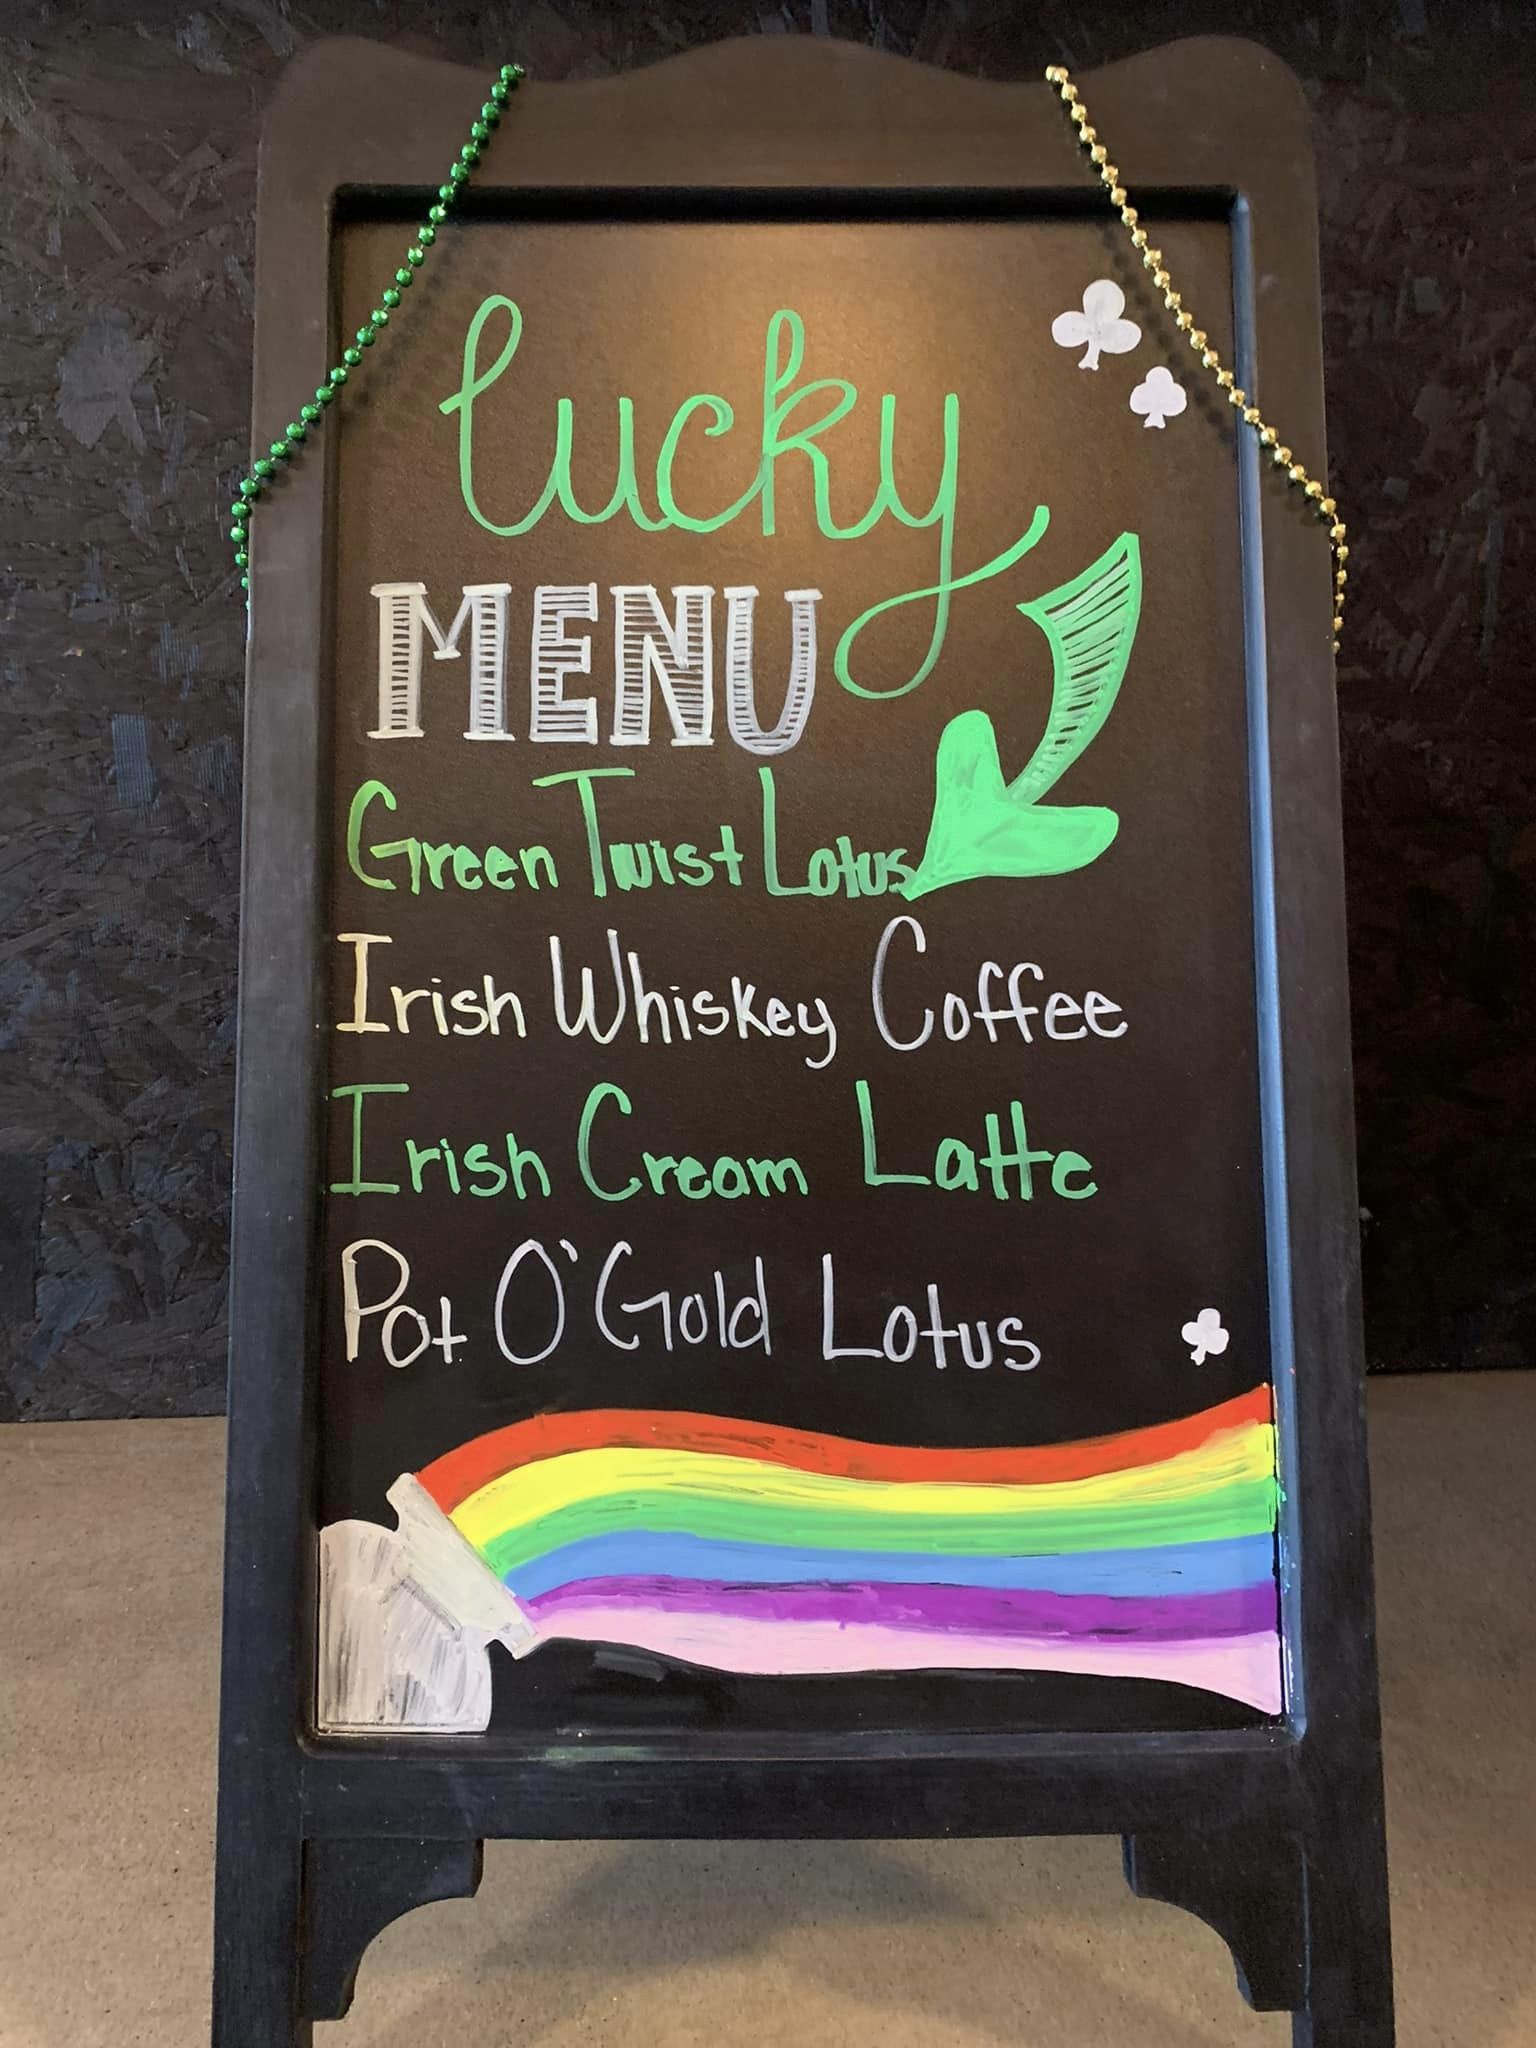 lucky
MENU
Green Twist Lotus
Irish Whiskey Coffee
Irish Cream Latte
Pot O'Gold Lotus